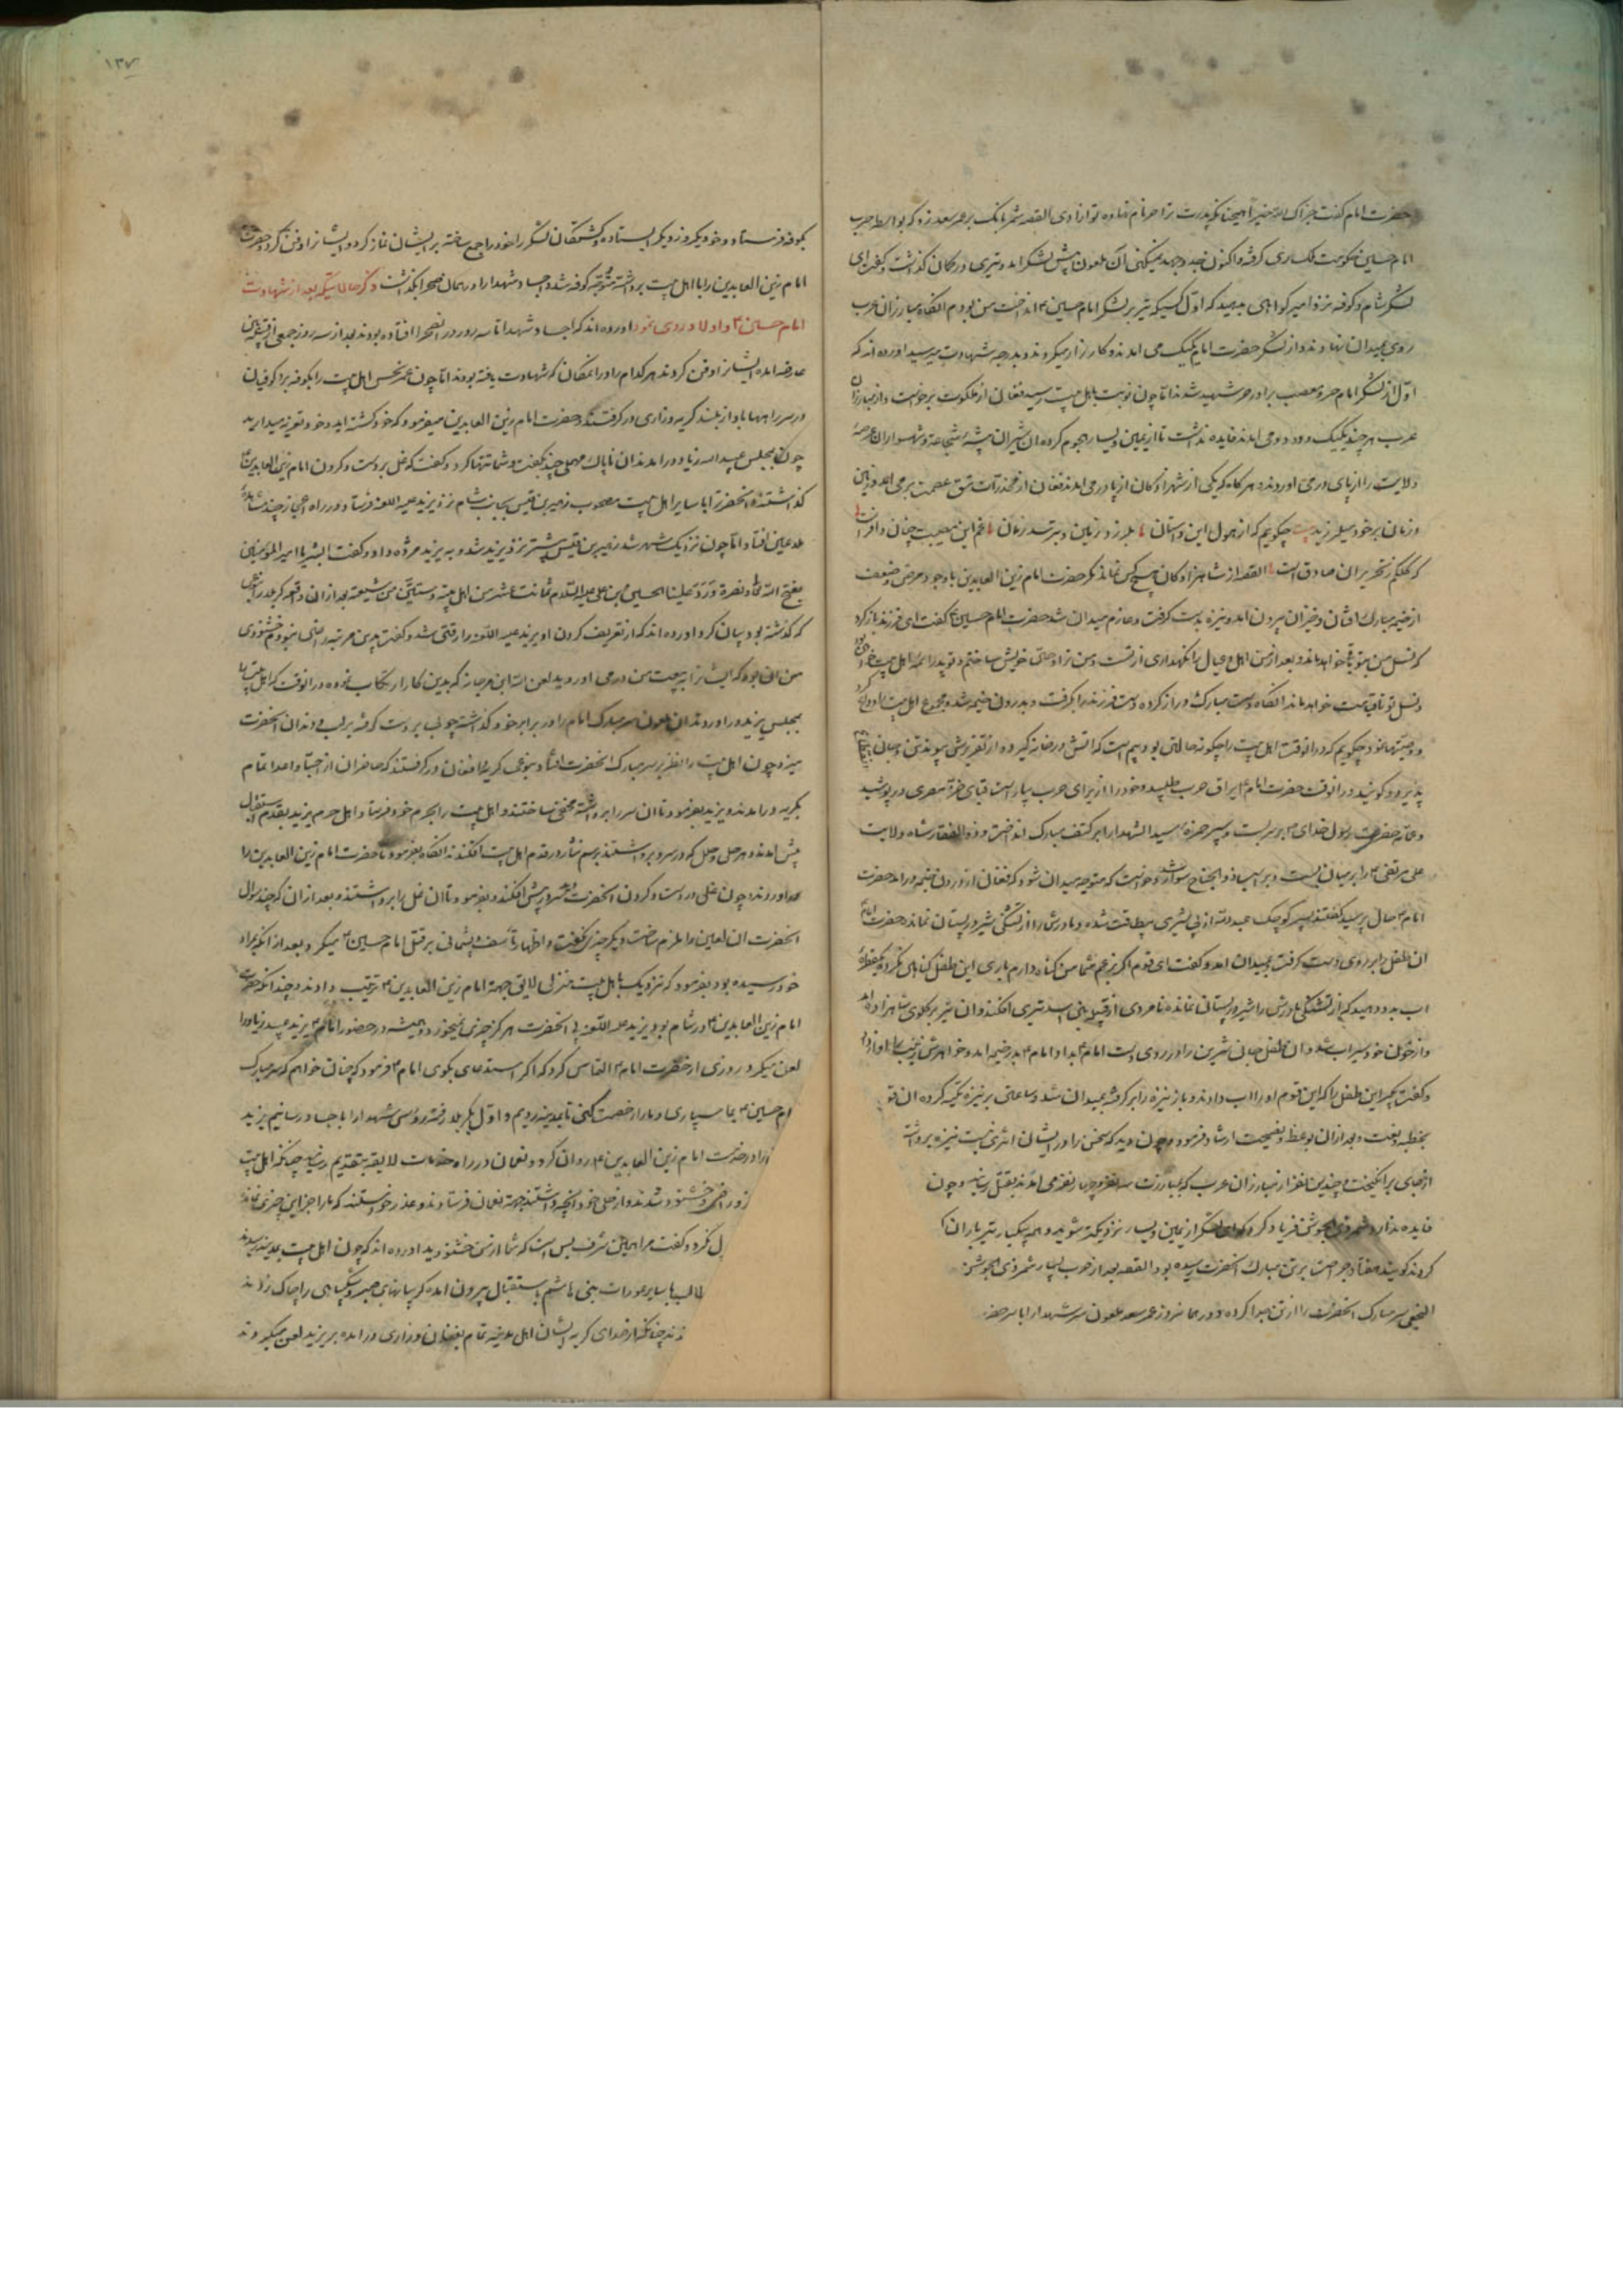 حضرت امام گفت جزاک الله خیرا همچنانکه پدرت ترا حر نام نهاده تو ازادی القصه شمر بانک بر عمر سعد زد که بواسطه حرب
امام حسین حکومت ملک ری گرفته و اکنون جد و جهد نمیکنی آن ملعون پیش لشکر امد و تیری در کمان گذاشت و گفت ای
لشکر شام و کوفه نزد امیر گواهی بدهید که اول کسیکه تیر بر لشکر امام حسین انداخت من بودم انگاه مبارزان عرب
روی بمیدان نهادند و از لشکر حضرت امام یک یک می امدند و کارزار میکردند و بدرجه شهادت میرسید اورده اند که
اول از لشکر امام حر و مصعب برادر حر شهید شدند تا چون نوبت باهل بیت رسید فغان از ملکوت برخواست و از مبارزان
عرب هر چند یک یک و دو دو می امدند فایده نداشت تا از یمین و یسار هجوم کرده ان شیران بیشه شجاعت و شهسواران عرصه
ولایت را از پای در می اوردند و هر کاه که یکی از شهزادکان از پا در می امد فغان از مخدرات تتق عصمت بر می امد و زمین
و زمان بر خود میلرزید بیت چکویم که از هول این داستان بلرزد زمین و بترسد زمان غم این مصیبت چنان وافر است
که کلکم ز تحریر ان صادق است القصه از شاهزادکان هیچ کس نماند مگر حضرت امام زین العابدین با وجود مرض و ضعف
از خیمه مبارک افتان و خیزان بیرون امد و نیزه بدست گرفت و عازم میدان شد حضرت امام حسین گفت ای فرزند باز گرد
که نسل من بتو باقی خواهد ماند و بعد از من اهل و عیال را نگهداری از تست و من ترا وصی خویش ساختم و تو پدر ائمه اهل بیت خواهی بود
و نسل تو تا قیامت خواهد ماند انگاه دست مبارک دراز کرده دست فرزند را گرفت و بدرون خیمه شد و مجموع اهل بیت را وداع کرد
و وصیتها نمود چکویم که در انوقت اهل بیت را چگونه حالتی بود بیم است که اتش در خانه گیرد و از تقریرش سوزد تن و جان
پذیرد و گویند در انوقت حضرت امام یراق حرب طلبید و خود را از برای حرب بیاراست قبای خز مصری در پوشید
و عمامه حضرت رسول خدای بر سر بست و سپر حمزه سید الشهدا را بر کتف مبارک انداخت و ذوالفقار شاه ولایت
علی مرتضی را بر میان بست و بر اسپ ذوالجناح سوار شد و خواست که متوجه میدان شود که فغان از درون خیمه بر امد حضرت
امام حال پرسید گفتند پسر کوچک عبدالله از بی شیری بیطاقت شده و مادرش را از تشنگی شیر در پستان نماند حضرت امام
ان طفل را بر روی دست گرفت بمیدان امد و گفت ای قوم اگر بزعم شما من گناه دارم باری این طفل گناهی نکرده یکقطره
اب بدو دهید که از تشنگی مادرش را شیر در پستان نمانده نامردی از قبیله بنی اسد تیری افکند و ان تیر بر گلوی شاهزاده امد
و از خون خود سیراب شد و ان طفل جان شیرین را در روی دست امام بداد امام بدر خیمه امد و خواهرش زینب را اواز داد
و گفت بگیر این طفل را که این قوم او را اب دادند و باز نیزه را بر گرفته بمیدان شد و ساعتی بر نیزه تکیه کرده ان قوم
بخطبه بلغت و بعد از ان بوعظ و نصیحت ارشاد فرموده چون دید که سخن را در ایشان اثری نیست نیزه برداشته
از جای بر انگیخت و چندین نفر از مبارزان عرب که بمبارزت سه نفر و چهار نفر می امدند بقتل رسانید و چون
فایده ندارد شمر ذی الجوشن فریاد کرد که ای لشکر از یمین و یسار نزدیکتر شوید و همه بیکبار تیر باران
کردند گویند هفتاد جراحت بر تن مبارک انحضرت رسیده بود القصه بعد از حرب بسیار شمر ذی الجوشن
النخعی سر مبارک انحضرت را از تن جدا کرده و در همان روز عمر سعد ملعون سر شهدا را با سر حضرت
۱۳۷
بکوفه فرستاد و خود یک روز دیگر ایستاده و کشتکان لشکر را خود را جمع ساخته بر ایشان نماز کرد و ایشانرا دفن کرد و حضرت
امام زین العابدین را با اهل بیت برداشته متوجه کوفه شد و اجساد شهدا را در همان صحرا بگذاشت ذکر حالاتیکه بعد از شهادت
امام حسین و اولاد روی نمود اورده اند که اجساد شهدا تا سه روز در انصحرا افتاده بودند بعد از سه روز جمعی از قبیله بنی
عارضه امده ایشانرا دفن کردند هر کدام را در انمکان که شهادت یافته بودند اما چون عمر نحس اهل بیت را بکوفه برد کوفیان
در سر راهها باواز بلند گریه و زاری در گرفتند حضرت امام زین العابدین میفرمود که خود کشته اید و خود تعزیه میدارید
چون بمجلس عبید الله زیاد در امدند ان ناپاک مهملی چند بگفت و شماتتها کرد و گفت که غل بر دست و گردن امام زین العابدین
گذاشتند و انحضرت با سایر اهل بیت مصحوب زهیر بن قیس بجانب شام نزد یزید علیه اللعنه فرستاد و در راه اعجاز چند مشاهده
ملاعین افتاد اما چون نزدیک شهر شد زهیر بن قیس پیشتر نزد یزید شد و به یزید مژده داد و گفت ابشر یا امیر المومنین
بفتح الله و نصره ورد علینا الحسین بن علی علیه السلام ثمانت عشر من اهل بیته و ستین من شیعته بعد از ان واقعه کربلا را بنوعی
که گذشته بود بیان کرد اورده اند که از تعریف کردن او یزید علیه اللعنه را رقتی شد و گفت بدین مرتبه راضی نبودم خشنودی
من ان بود که ایشانرا به بیعت من در می اوردید لعن الله ابن مرجانه که بدین کار ارتکاب نموده در انوقت که اهل بیت را
بمجلس یزید در اوردند ان ملعون سر مبارک امام را در برابر خود گذاشته چوبی بر دست گرفته بر لب و دندان انحضرت
میزد چون اهل بیت را نظر بر سر مبارک انحضرت افتاد بنوعی گریه و فغان در گرفتند که حاضران از احبا و اعدا تمام
بگریه در امدند و یزید بفرمود تا ان سر را برداشته مخفی ساختند و اهل بیت را بحرم خود فرستاد و اهل حرم یزید بقدم استقبال
پیش امدند و هر حلی و حلل که در سر و بر داشتند برسم نثار در قدم اهل بیت افکندند انگاه بفرمود تا حضرت امام زین العابدین را
اوردند چون غل در دست و گردن انحضرت دید سر در پیش افکند و بفرمود تا ان غل را برداشتند و بعد از ان که چند سوال
انحضرت ان لعین را ملزم ساخت دیگر چیزی نگفت و اظهار تاسف و پشمانی بر قتل امام حسین میکرد و بعد از انکه بمراد
خود رسیده بود بفرمود که نزدیک باهل بیت منزلی لایق جهة امام زین العابدین ترتیب دادند و چندانکه حضرت
امام زین العابدین در شام بود یزید علیه اللعنه بی انحضرت هرگز چیزی نمیخورد و همیشه در حضور امام یزید عبید زیاد را
لعن میکرد روزی از حضرت امام التماس کرد که اگر استدعای بگوی امام فرمود که چنان خواهم که سر مبارک
امام حسین بما سپاری و ما را رخصت کنی تا بمدینه رویم و اول بکربلا رفته رؤس شهدا را با جساد رسانیم یزید
را در خدمت امام زین العابدین روان کرد و نعمان در راه خدمات لایقه بتقدیم رسانید چنانکه اهل بیت
ازو راضی و خشنود شدند و از حلی خود انچه داشتند جهة نعمان فرستادند و عذر خواستند که ما را جز این چیزی نمانده
ل نکرد و گفت مرا همین شرف بس است که شما از من خشنودید اورده اند که چون اهل بیت بمدینه رسیدند
طالب با سایر عورات بنی هاشم باستقبال بیرون امده گریبانهای صبر و شکیبایی را چاک زدند
زدند چنانکه از صدای گریه ایشان اهل مدینه تمام بفغان و زاری در امده بر یزید لعن میکردند